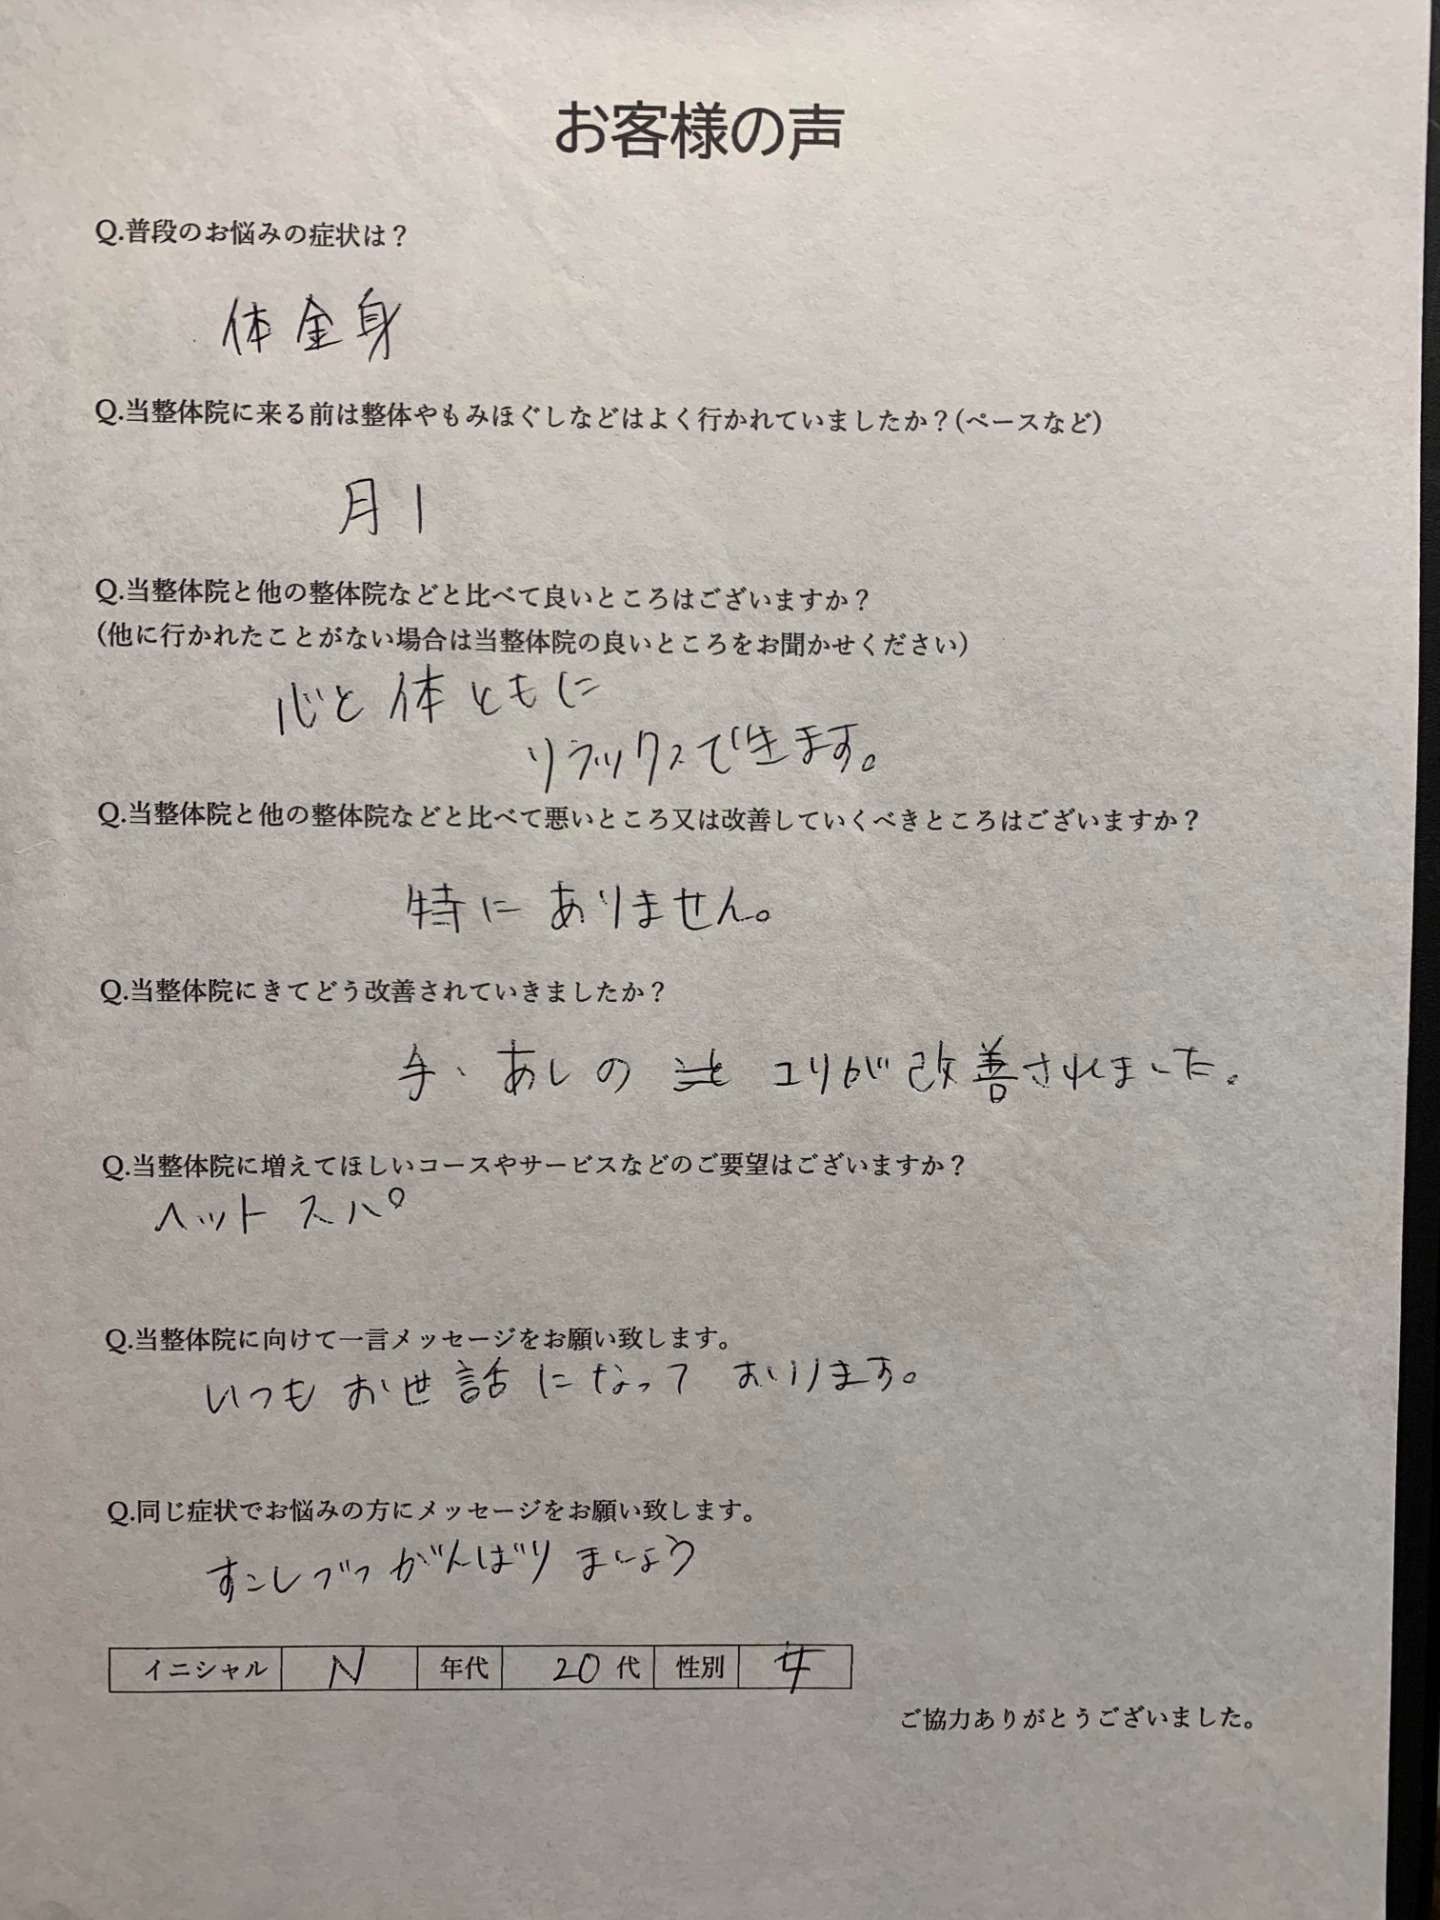 お客様の声
Q.普段のお悩みの症状は？
体全身
Q.当整体院に来る前は整体やもみほぐしなどはよく行かれていましたか？(ペースなど)
月1
Q.当整体院と他の整体院などと比べて良いところはございますか？
(他に行かれたことがない場合は当整体院の良いところをお聞かせください)
心と体ともに
リラックスできます。
Q.当整体院と他の整体院などと比べて悪いところ又は改善していくべきところはございますか？
特にありません。
Q.当整体院にきてどう改善されていきましたか？
手、あしの コリが改善されました。
Q.当整体院に増えてほしいコースやサービスなどのご要望はございますか？
ヘットスパ
Q.当整体院に向けて一言メッセージをお願い致します。
いつもお世話になっております。
Q.同じ症状でお悩みの方にメッセージをお願い致します。
すこしづつがんばりましょう
イニシャル N 年代 20代 性別 女
ご協力ありがとうございました。